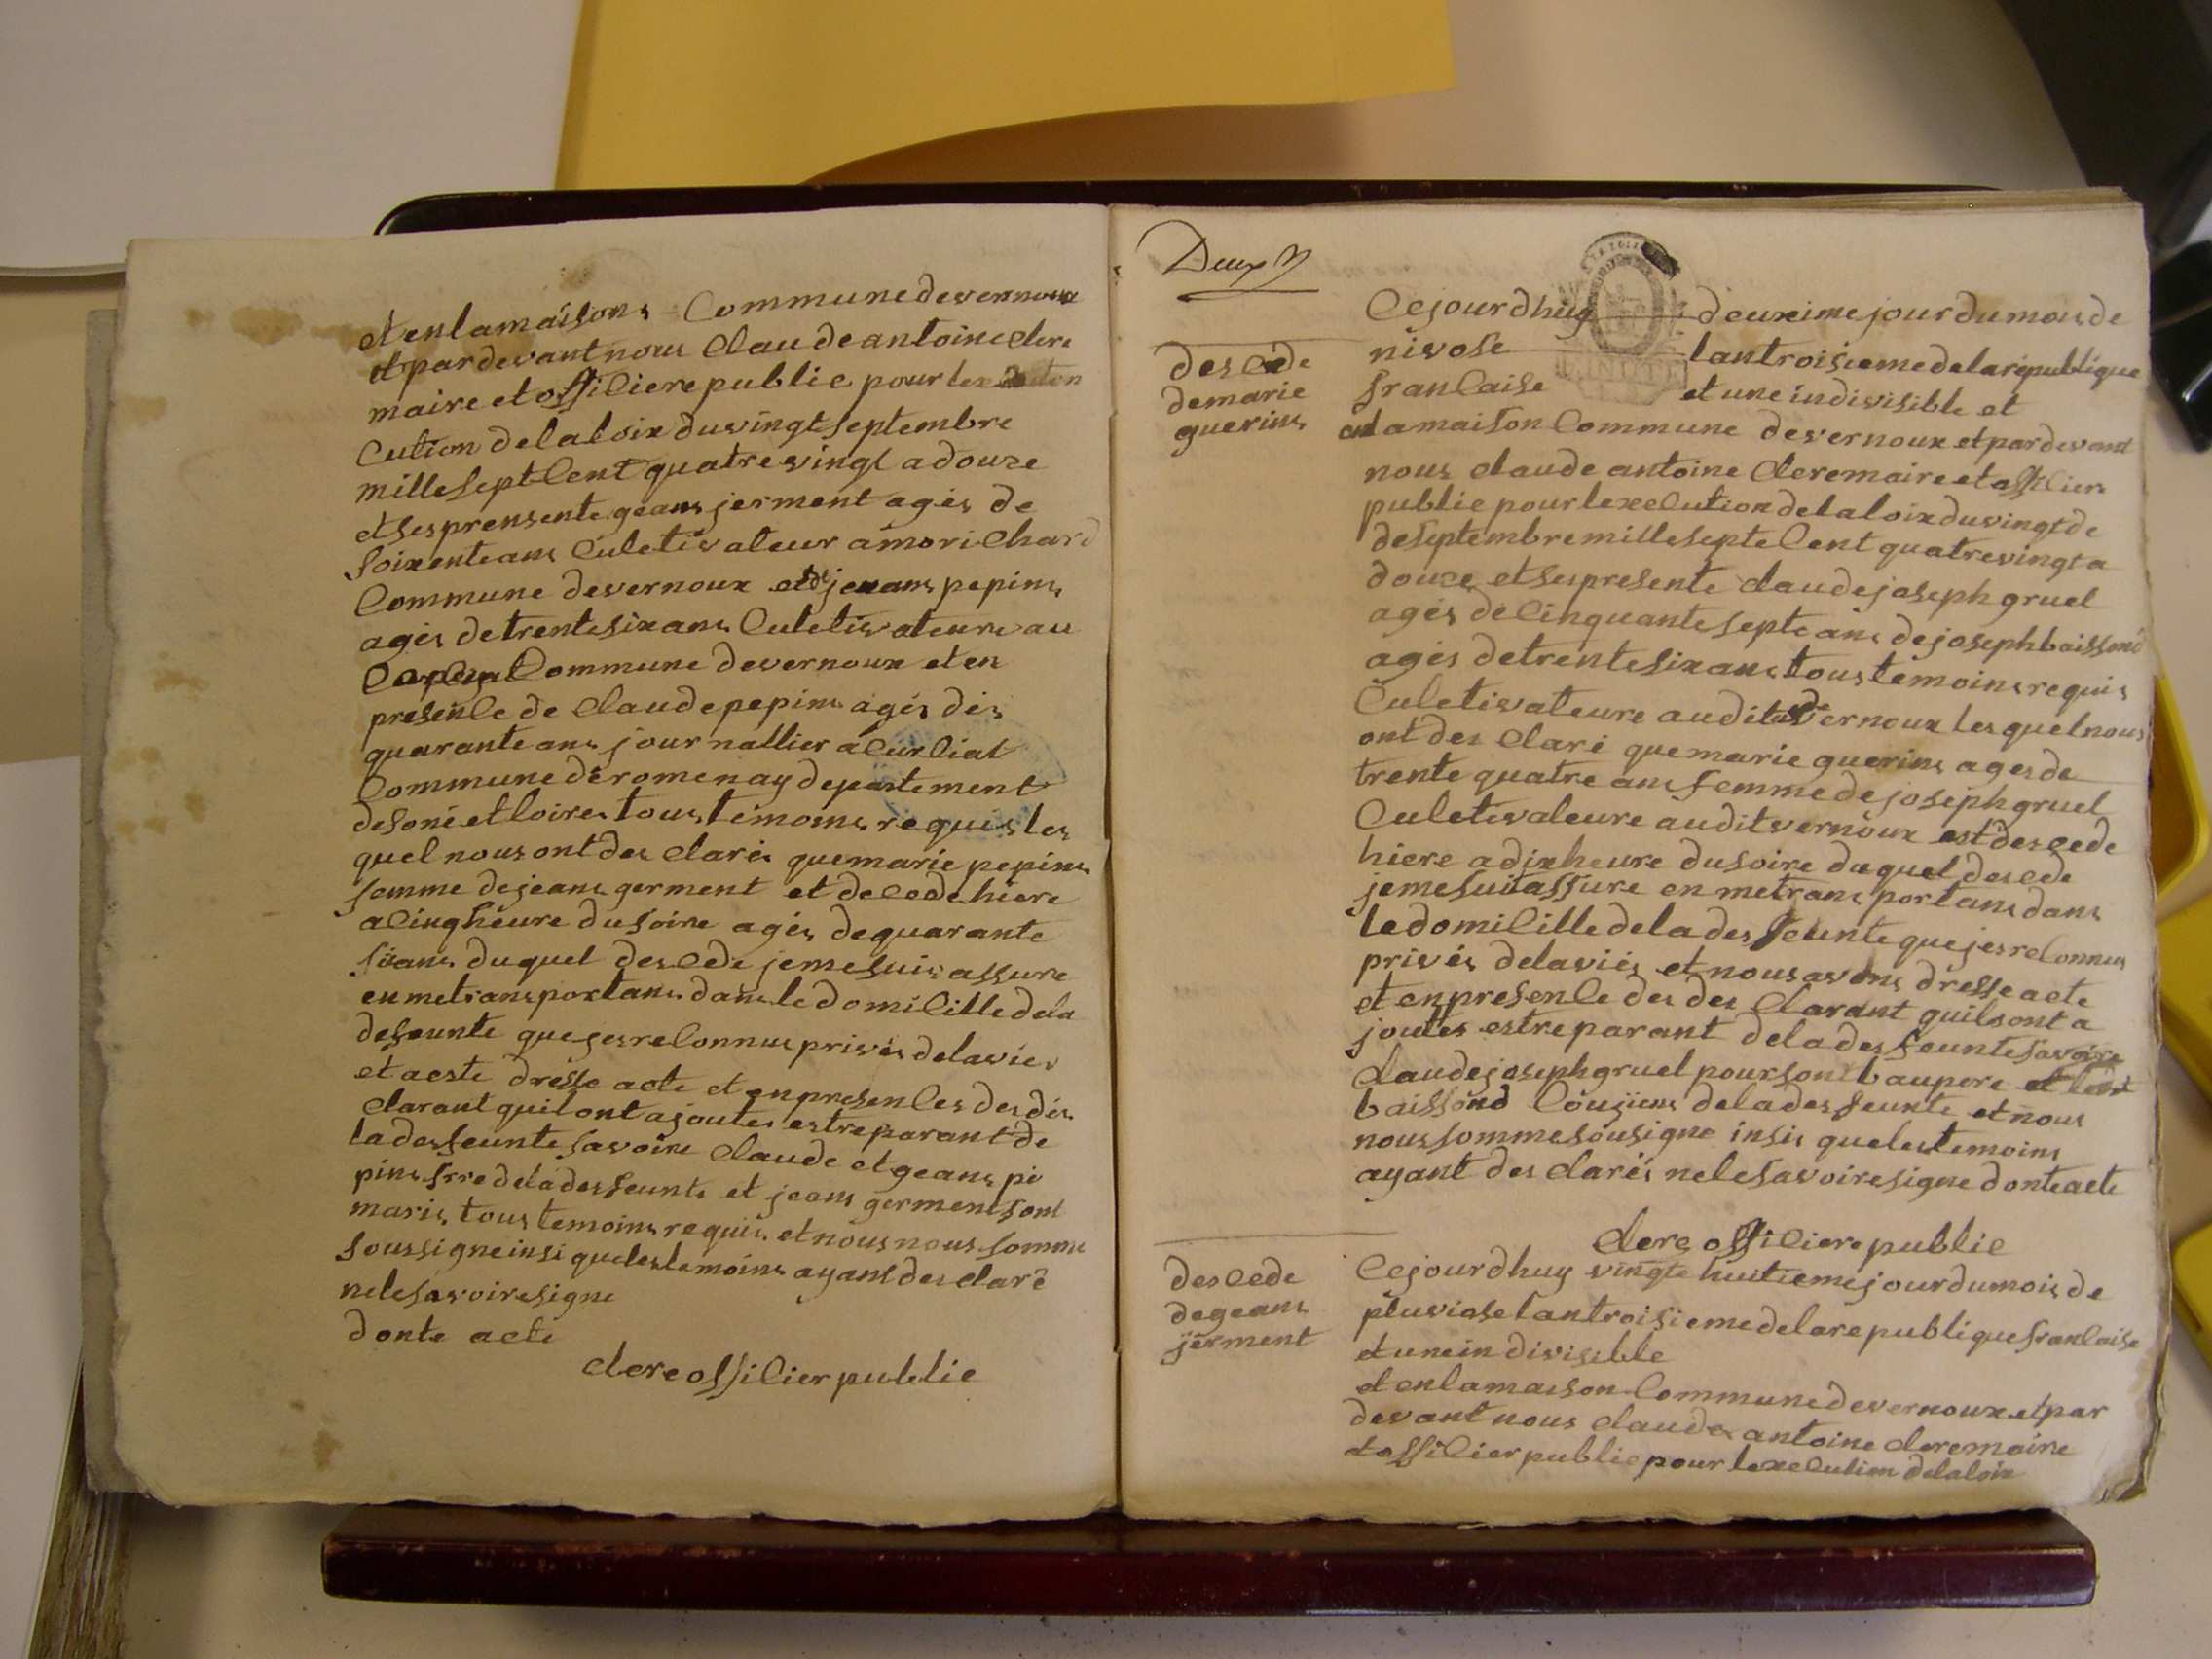 et en la maisons Commune de vernoux
et par devant nous Claude antoine clere
maire et offiliere publie pour lex
Cution de la loix du vingt septembre
mille sept Cent quatre vingt a douze
et ses prensente geans jerment agés de
soixente ans Culetivateur a morichard
Commune de vernoux et de jeans pepins
agés de trente six ans Culetivateure au
Commune de vernoux et en
presenle de Claude pepins agés des
quarante ans jour nallier a Curliat
Commune de romenay departement
de soné et loires tous temoins requis les
quel nous ont des clarés que marie pepins
femme de jeans germent et decede hiere
a Cinq heure du soire agés de quarante
sixans du quel descede je me suis assure
en me trans portans dans le domicille dela
defeunte que jes reconnus privés de la vies
et aeste dresse acte et en presenCes des dés
clarant quil ont ajoutes estre parant de
la desfeunte savoire Claude et geans pe
pins frre de la desfeunte et jeans germent sont
maris tous temoins requis et nous nous somme
soussigne insi queles temoins ayans des claré
nele savoire signe
donte acte
clere offiCier publie
Deux
descede
de marie
guerins
Ce jourdhuy deuxime jour du mois de
nivose lan troisieme de la republique
franCaise et une indivisible et
en la maison Commune de vernoux et par devant
nous claude antoine clere maire et offiCiers
publie pour lexeCution de la loix du vingt de
de septembre mille septe Cent quatre vingt a
douze et ses presente claude joseph gruel
agés de Cinquante septe ans de joseph baissond
agés de trente six ans tous temoins requis
Culetivateure audit vernoux les quel nous
ont des claré que marie guerins ages de
trente quatre ans femme de joseph gruel
Culetivateure audit vernoux est descede
hiere a dix heure du soire du quel descede
je me suit assure en me trans portans dans
le domiCille de la des feunte que jes reConnus
privés de la viés et nous avons dresse acte
et en presenCe des des Clarant quil ont a
joutes estre parant de la des feunte savoire
claude joseph gruel pour sont baupere
baissond Cousiens de la des feunte et nous
nous somme sousigne insis queles temoins
ayant des clarés nele savoire signe donte acte
clere offiCiere publie
descede
de geans
jerment
Ce jourdhuy vingte huitieme jour du mois de
pluviose lan troisieme de la republique franCaise
et une in divisible
et en la maison Commune de vernoux et par
devant nous claude antoine clere maire
et offiCier publie pour lexeCution de la loix